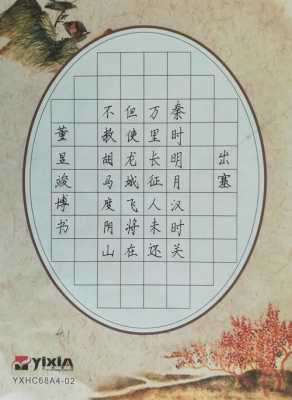 出塞
秦时明月汉时关
万里长征人未还
但使龙城飞将在
不教胡马度阴山
董昱骏博书
YIXIN
YXHC68A4-02